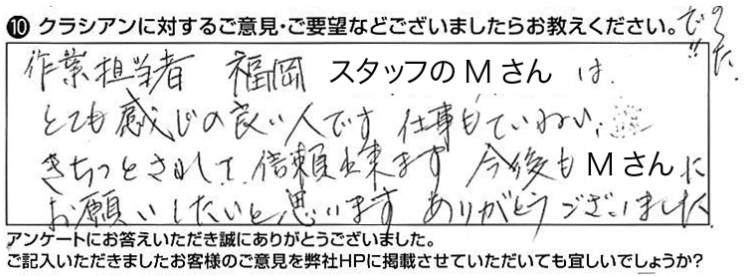 ⑩ クラシアンに対するご意見・ご要望などございましたらお教えください。
作業担当者 福岡 スタッフのMさん は
とても感じの良い人です 仕事もていねい
きちっとされて 信頼出来ます 今後もMさんに
お願いしたいと思います ありがとうございました
アンケートにお答えいただき誠にありがとうございました。
ご記入いただきましたお客様のご意見を弊社HPに掲載させていただいても宜しいでしょうか?